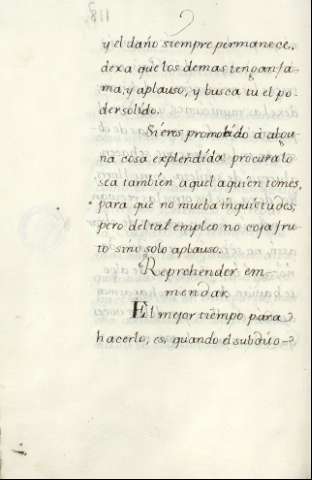 y el daño siempre permanece,
dexa que los demas tengan fa-
ma, y aplauso, y busca tu el po-
der solido.
Si eres promobido á algu-
na cosa explendida procura lo
sea tambien aquel aquien temes,
para que no mueba inquietudes,
pero del tal empleo no coja fru-
to sino solo aplauso.
Reprehender em-
mendar
El mejor tiempo para
hacerlo, es, quando el subdito-